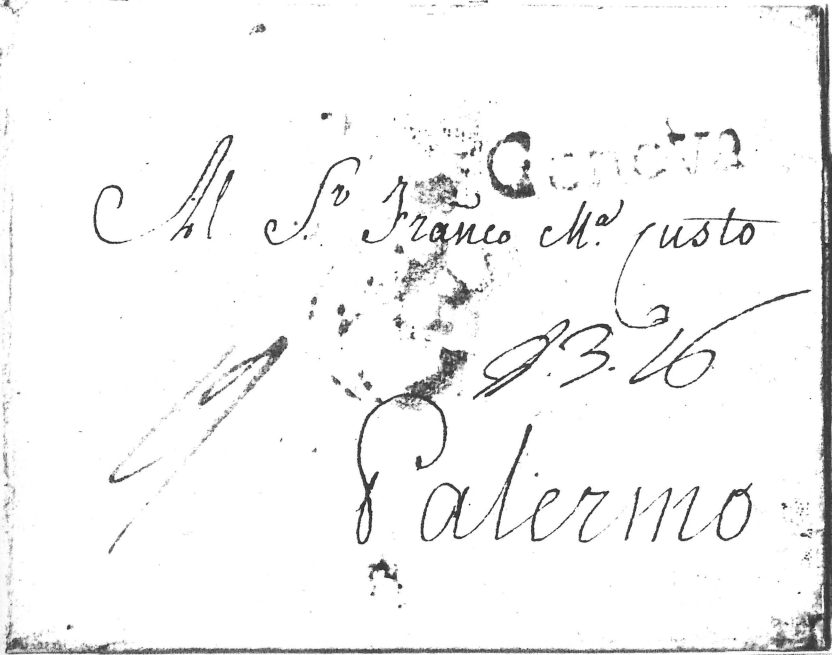 Genova
Al Sr Franco Ma Custo
3.26
Palermo